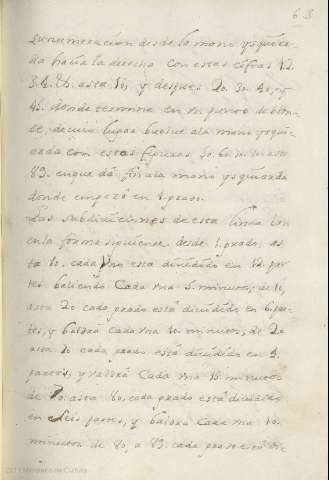 63
Su numeracion desde la mano ysquier-
da hacia la derecha con estas cifras 1.2.
3.4. asta 10, y despues 20. 30. 40. y
45. donde termina en un punto
de cuio lugar buelve ala mano ysqui-
erda con estas figuras 50. 60. asta
83. en que da fin ala mano ysquierda
donde empezó en 1. grado.
Las subdiviciones de esta linea son
en la forma siguiente. desde 1. grado, as-
ta 10. cada uno está dividido en 12. par-
tes baliendo Cada una 5. minutos; de 10,
asta 20 cada grado está dividido en 6. par-
tes, y baldrá Cada una 10. minutos, de 20
asta 50 cada grado está dividido en 4.
partes, y valdrá Cada una 15. minutos
de 50. asta 80. cada grado está dividido
en seis partes, y baldrá Cada una 10.
minutos de 80, a 83. cada grado está di-